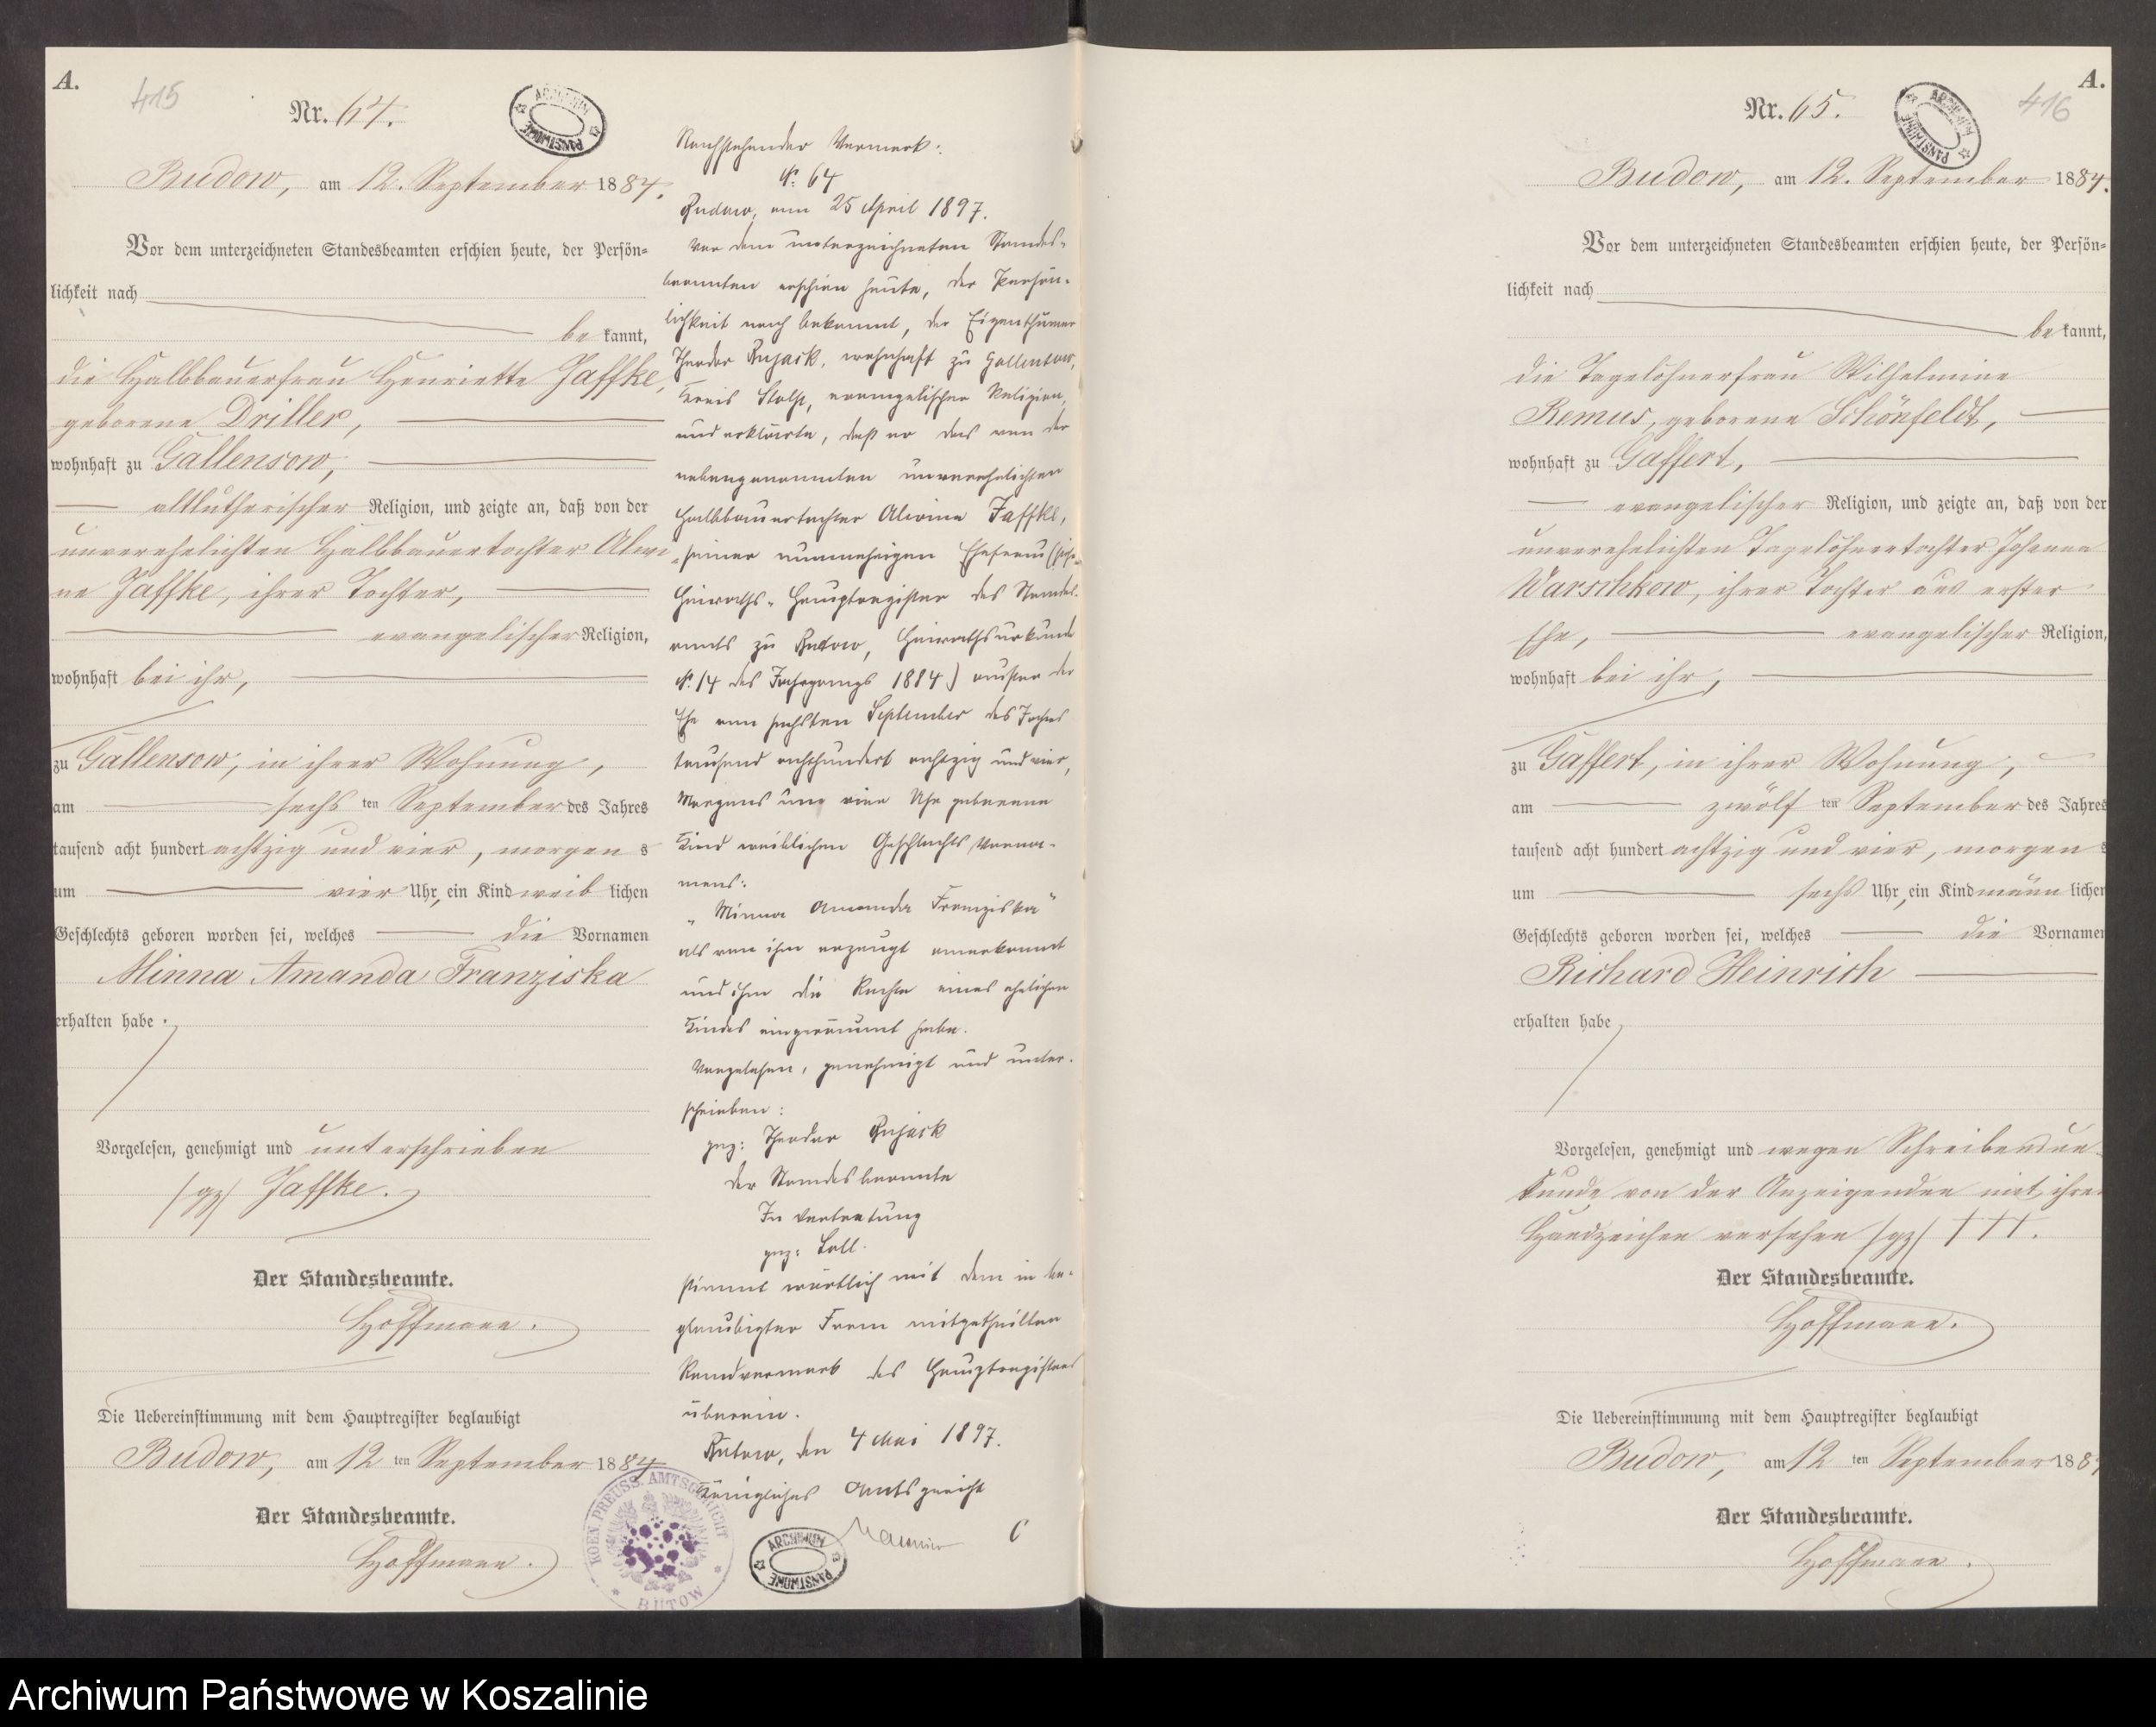 A.
415
Nr. 64.
ARCHIWUM
PAŃSTWOWE
Budow, am 12. September 1884.
Vor dem unterzeichneten Standesbeamten erschien heute, der Persön-
lichkeit nach
be kannt,
die Halbbauerfrau Henriette Jaffke,
geborene Driller,
wohnhaft zu Gallensow,
altlutherischer Religion, und zeigte an, daß von der
unverehelichten Halbbauertochter Alwi-
ne Jaffke, ihrer Tochter,
evangelischer Religion,
wohnhaft bei ihr,
zu Gallensow, in ihrer Wohnung,
am sechs ten September des Jahres
tausend acht hundert achtzig und vier, morgen s
um vier Uhr, ein Kind weib lichen
Geschlechts geboren worden sei, welches die Vornamen
Minna Amanda Franziska
erhalten habe.
Vorgelesen, genehmigt und unterschrieben
(gz) Jaffke.
Der Standesbeamte.
Hoffmann.
Die Uebereinstimmung mit dem Hauptregister beglaubigt
Budow, am 12 ten September 1884
Der Standesbeamte.
Hoffmann.
Nachstehender Vermerk:
№ 64
Budow, am 25 April 1897.
Vor dem unterzeichneten Standes-
beamten erschien heute, der Persön-
lichkeit nach bekannt, der Eigenthümer
Theodor, wohnhaft zu Gallensow,
Kreis Stolp, evangelischer Religion,
und erklärte, daß er das von der
nebengenannten unverehelichten
Halbbauertochter Alwine Jaffke,
seiner nunmehrigen Ehefrau (siehe
Heiraths-Hauptregister des Standes-
amts zu Budow, Heirathsurkunde
№ 14 des Jahrgangs 1884) außer der
Ehe am sechsten September des Jahres
tausend achthundert achtzig und vier,
Morgens um vier Uhr geborene
Kind weiblichen Geschlechts Vorna-
mens:
„Minna Amanda Franziska“
als von ihm erzeugt anerkannt
und ihm die Rechte eines ehelichen
Kindes eingeräumt habe.
Vorgelesen, genehmigt und unter-
schrieben:
gez: Theodor
Der Standesbeamte
In Vertretung
gez:
stimmt wörtlich mit dem in be-
glaubigter Form mitgetheilten
Randvermerk des Hauptregisters
überein.
Bütow, den 4 Mai 1897.
Königliches Amtsgericht
KOEN. PREUSS. AMTSGERICHT
BÜTOW
ARCHIWUM
PAŃSTWOWE
A.
416
Nr. 65.
ARCHIWUM
PAŃSTWOWE
Budow, am 12. September 1884.
Vor dem unterzeichneten Standesbeamten erschien heute, der Persön-
lichkeit nach
be kannt,
die Tagelöhnerfrau Wilhelmine
Remus, geborene Schönfeldt,
wohnhaft zu Gaffert,
evangelischer Religion, und zeigte an, daß von der
unverehelichten Tagelöhnertochter Johanna
Warschkow, ihrer Tochter aus erster
Ehe, evangelischer Religion,
wohnhaft bei ihr,
zu Gaffert, in ihrer Wohnung,
am zwölf ten September des Jahres
tausend acht hundert achtzig und vier, morgen s
um sechs Uhr, ein Kind männ lichen
Geschlechts geboren worden sei, welches die Vornamen
Richard Heinrich
erhalten habe
Vorgelesen, genehmigt und wegen Schreibensun-
kunde von der Anzeigenden mit ihrem
Handzeichen versehen (gz) +++.
Der Standesbeamte.
Hoffmann.
Die Uebereinstimmung mit dem Hauptregister beglaubigt
Budow, am 12 ten September 1884
Der Standesbeamte.
Hoffmann.
Archiwum Państwowe w Koszalinie